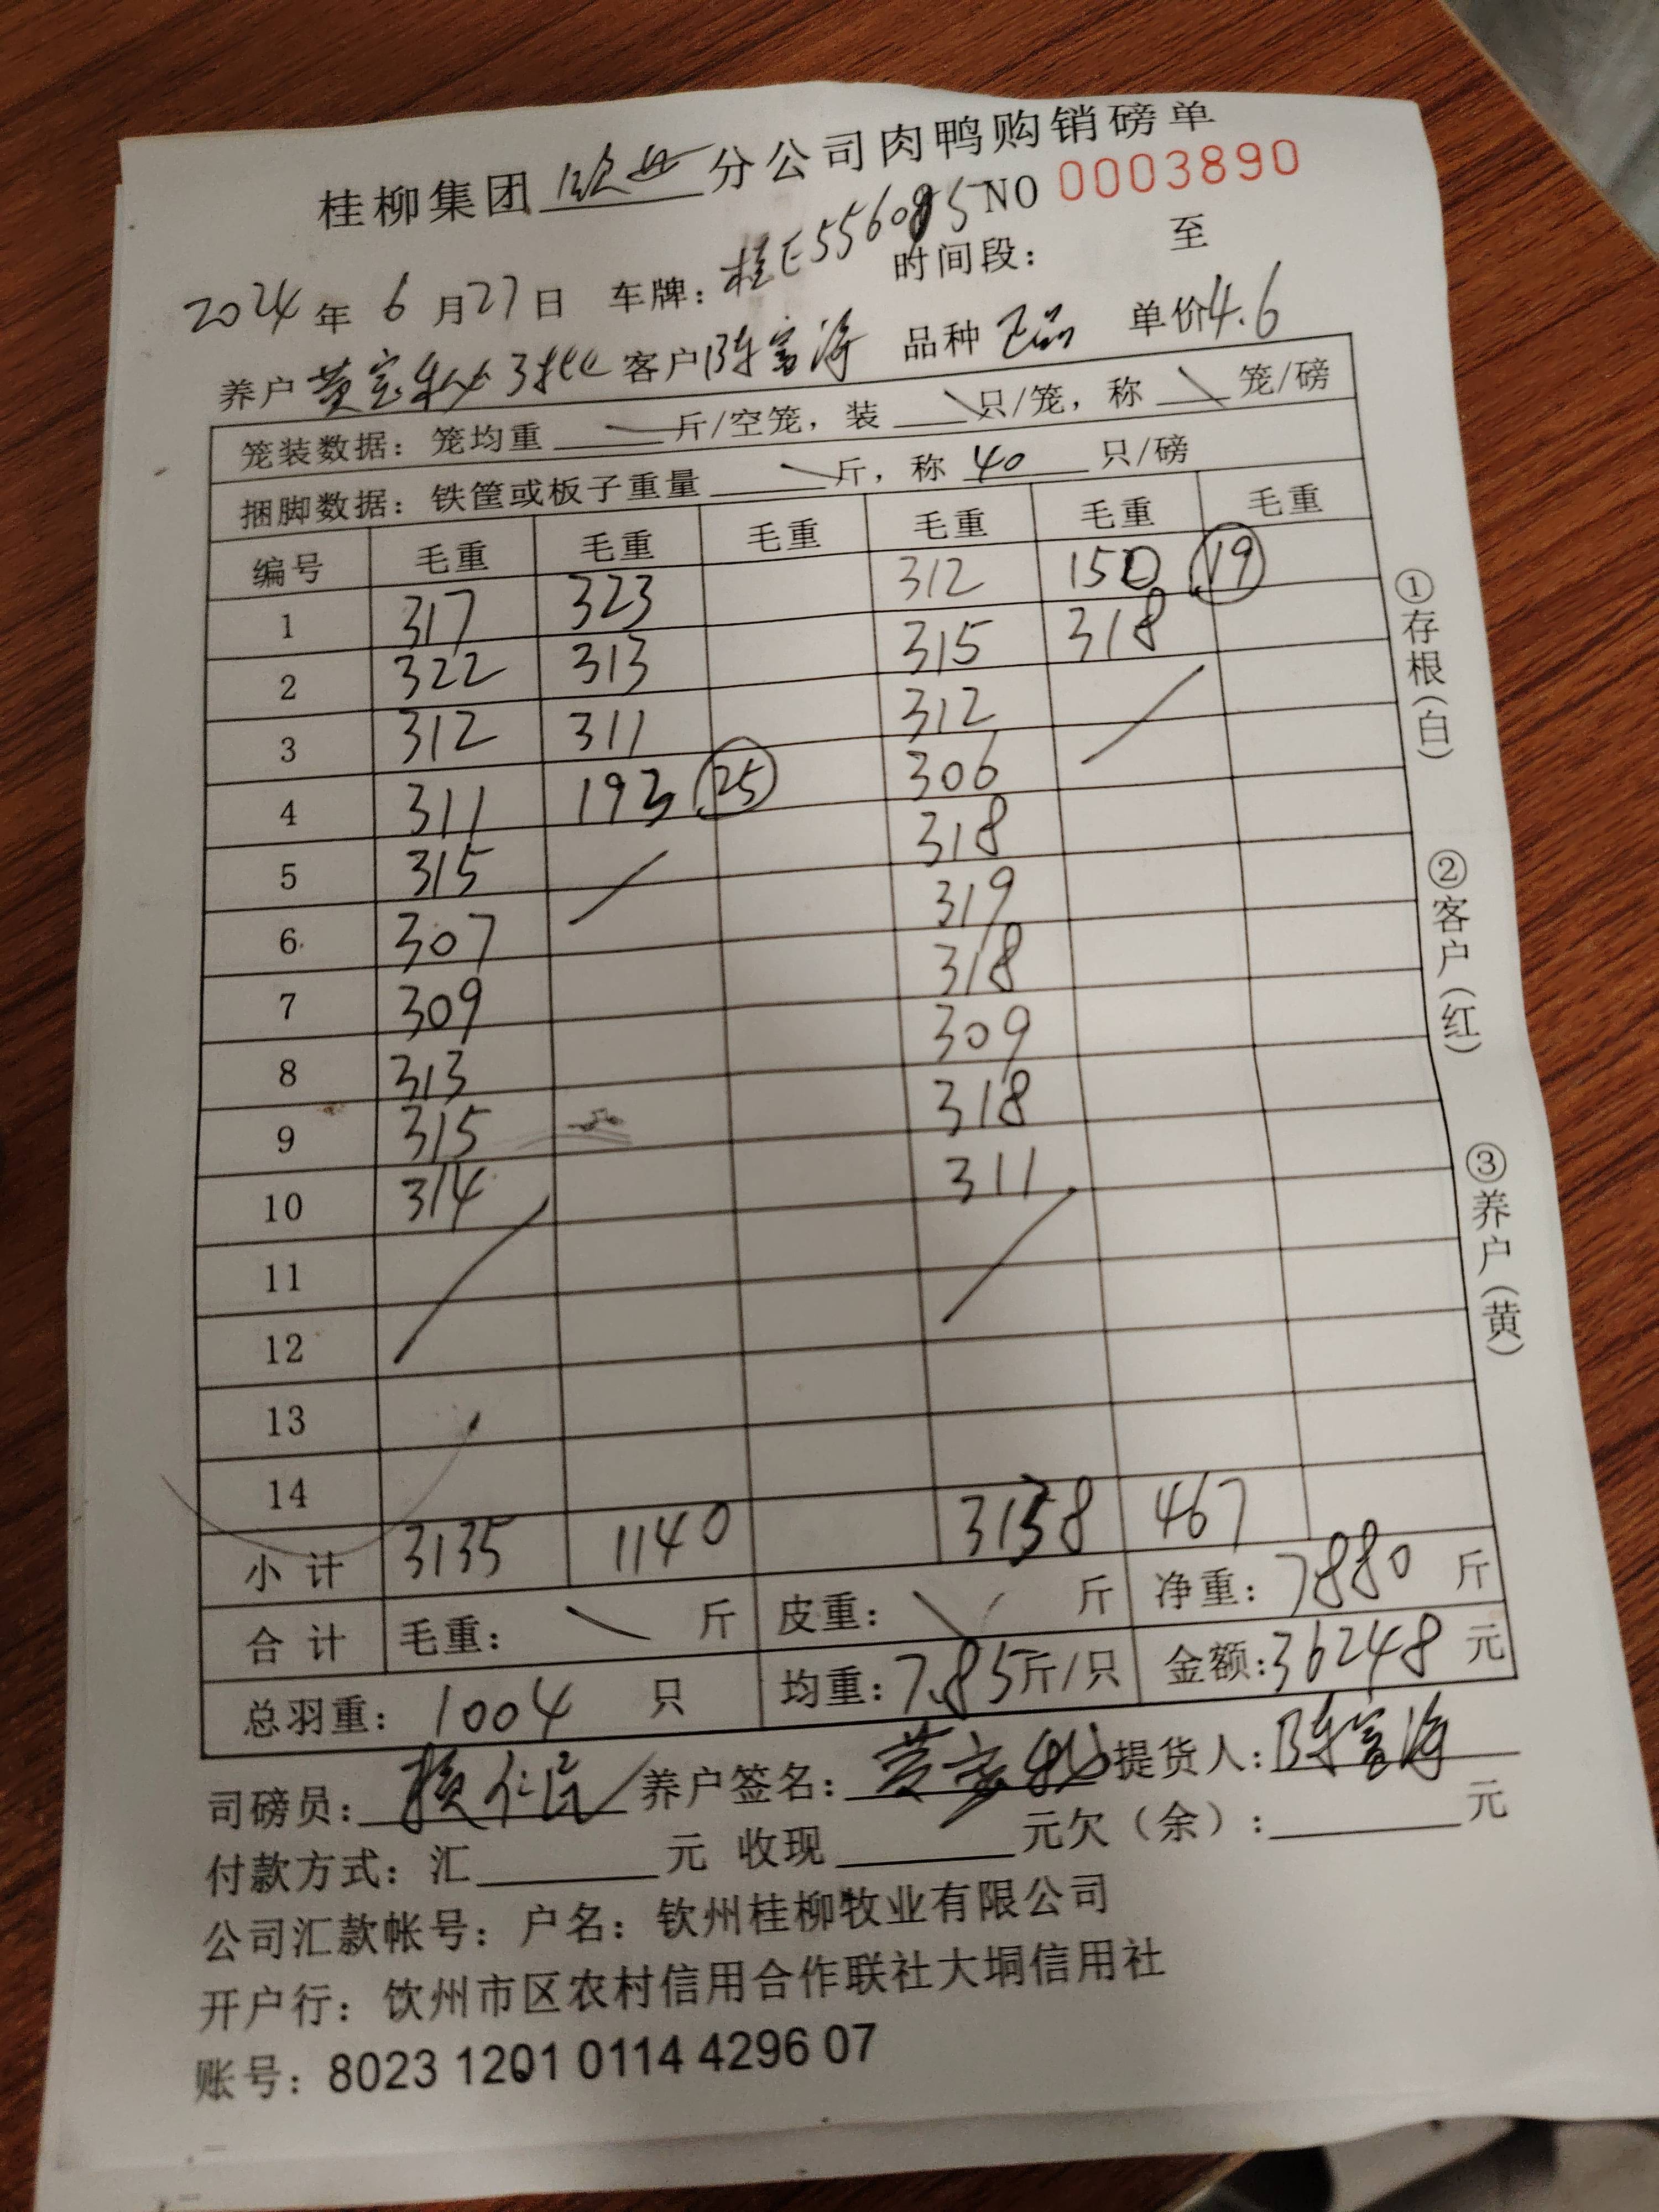 桂柳集团 钦州 分公司肉鸭购销磅单
NO 0003890
2024 年 6 月 27 日 车牌: 桂E556085 时间段: 至
养户 黄家秘 3批 客户 陈富海 品种 正品 单价 4.6
笼装数据: 笼均重 \ 斤/空笼, 装 \ 只/笼, 称 \ 笼/磅
捆脚数据: 铁筐或板子重量 \ 斤, 称 40 只/磅
编号 毛重 毛重 毛重 毛重 毛重 毛重
1 317 323 312 150 19
2 322 313 315 318
3 312 311 312
4 311 193 25 306
5 315 318
6 307 319
7 309 318
8 313 309
9 315 318
10 314 311
11
12
13
14
小计 3135 1140 3138 467
合计 毛重: \ 斤 皮重: \ 斤 净重: 7880 斤
总羽重: 1004 只 均重: 7.85 斤/只 金额: 36248 元
司磅员: 养户签名: 黄家秘 提货人: 陈富海
付款方式: 汇 元 收现 元欠(余): 元
公司汇款帐号: 户名: 钦州桂柳牧业有限公司
开户行: 钦州市区农村信用合作联社大垌信用社
账号: 8023 1201 0114 4296 07
①存根(白)
②客户(红)
③养户(黄)